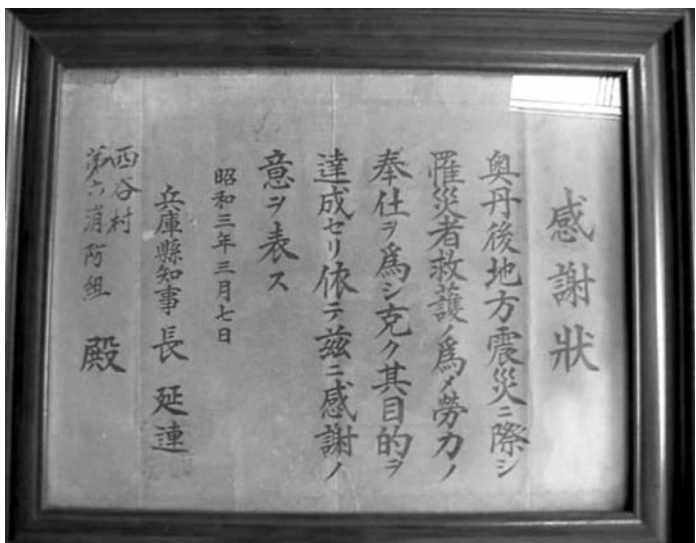 感謝狀
奥丹後地方震災ニ際シ
罹災者救護ノ爲メ勞力ノ
奉仕ヲ爲シ克ク其目的ヲ
達成セリ依テ茲ニ感謝ノ
意ヲ表ス
昭和三年三月七日
兵庫縣知事 長 延連
西谷村
第六消防組 殿